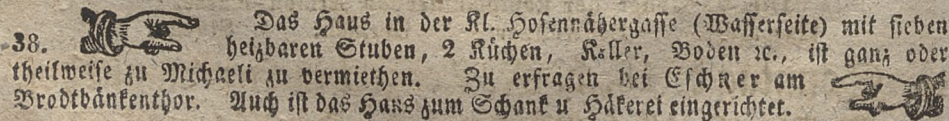 38. Das Haus in der Kl. Hosennähergasse (Wasserseite) mit sieben
heizbaren Stuben, 2 Küchen, Keller, Boden ꝛc., ist ganz oder
theilweise zu Michaeli zu vermiethen. Zu erfragen bei Eschner am
Brodtbänkenthor. Auch ist das Haus zum Schank u Häkerei eingerichtet.